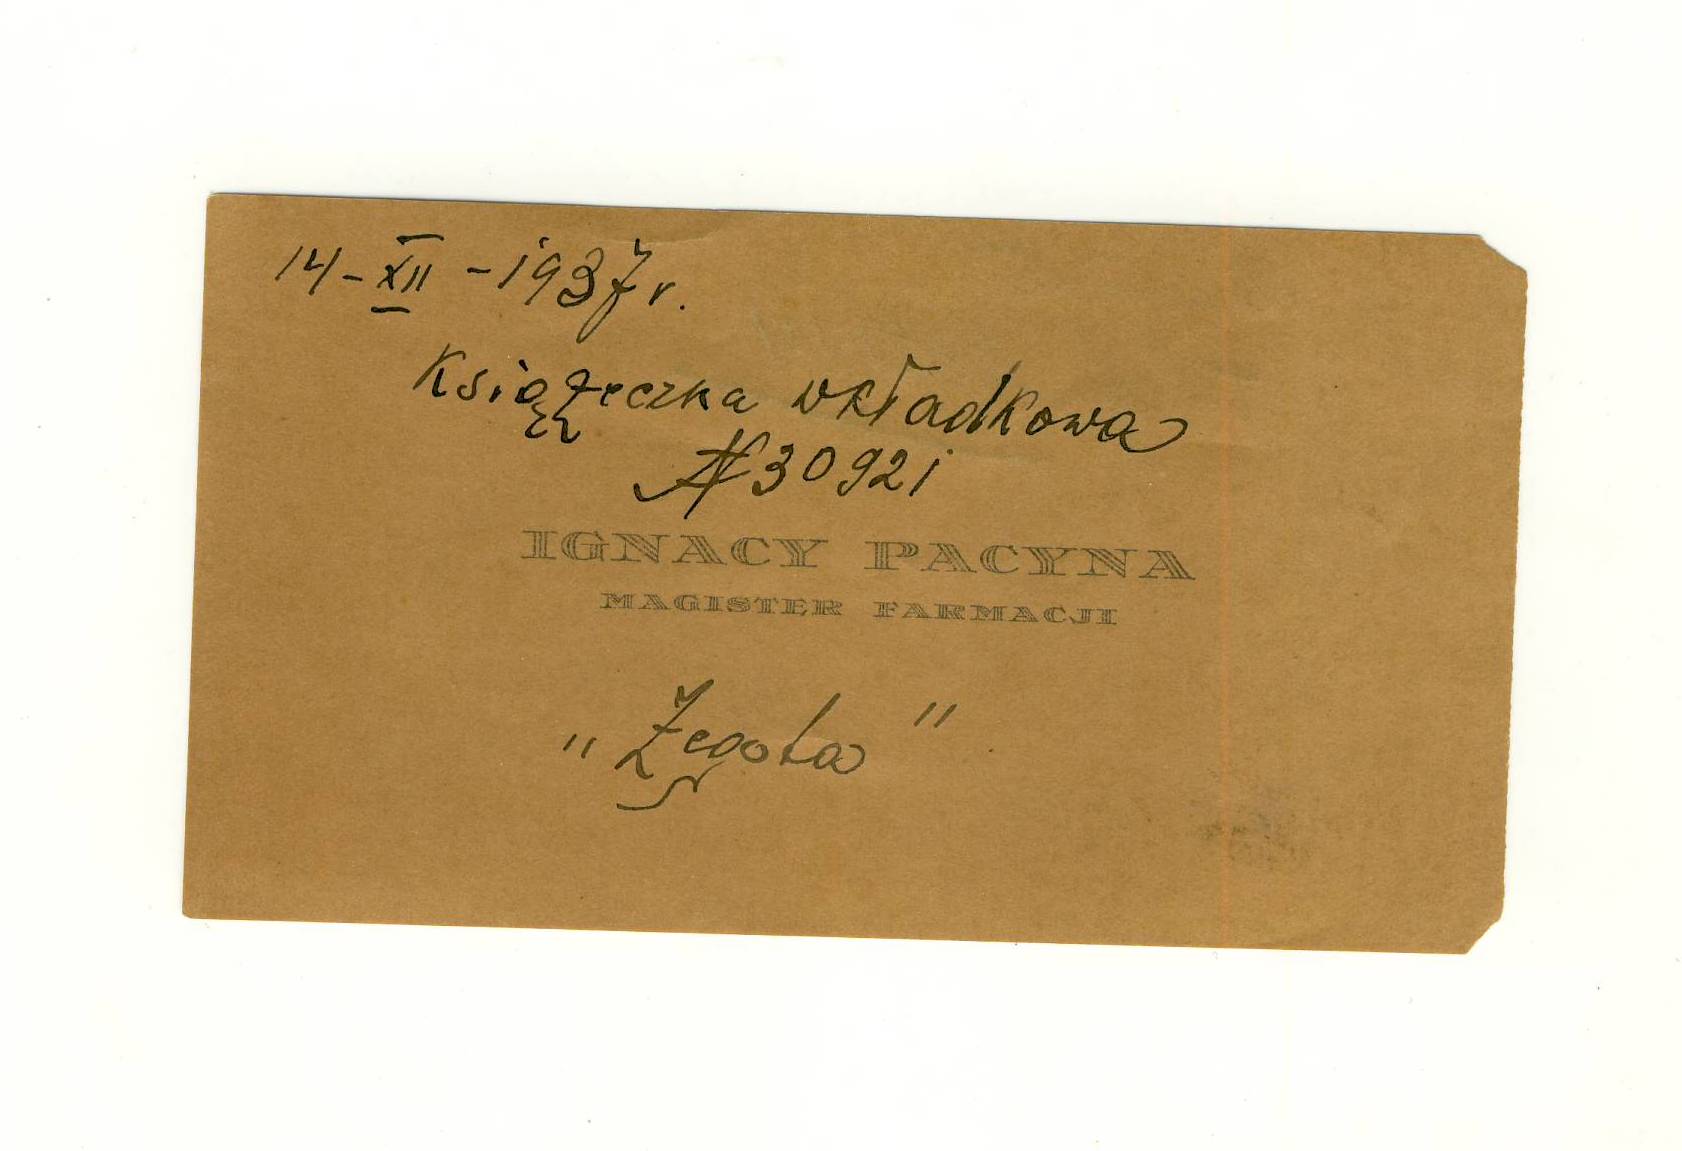 14-XII-1937 r.
Książeczka wkładkowa
№ 30921
IGNACY PACYNA
MAGISTER FARMACJI
„Żegota"